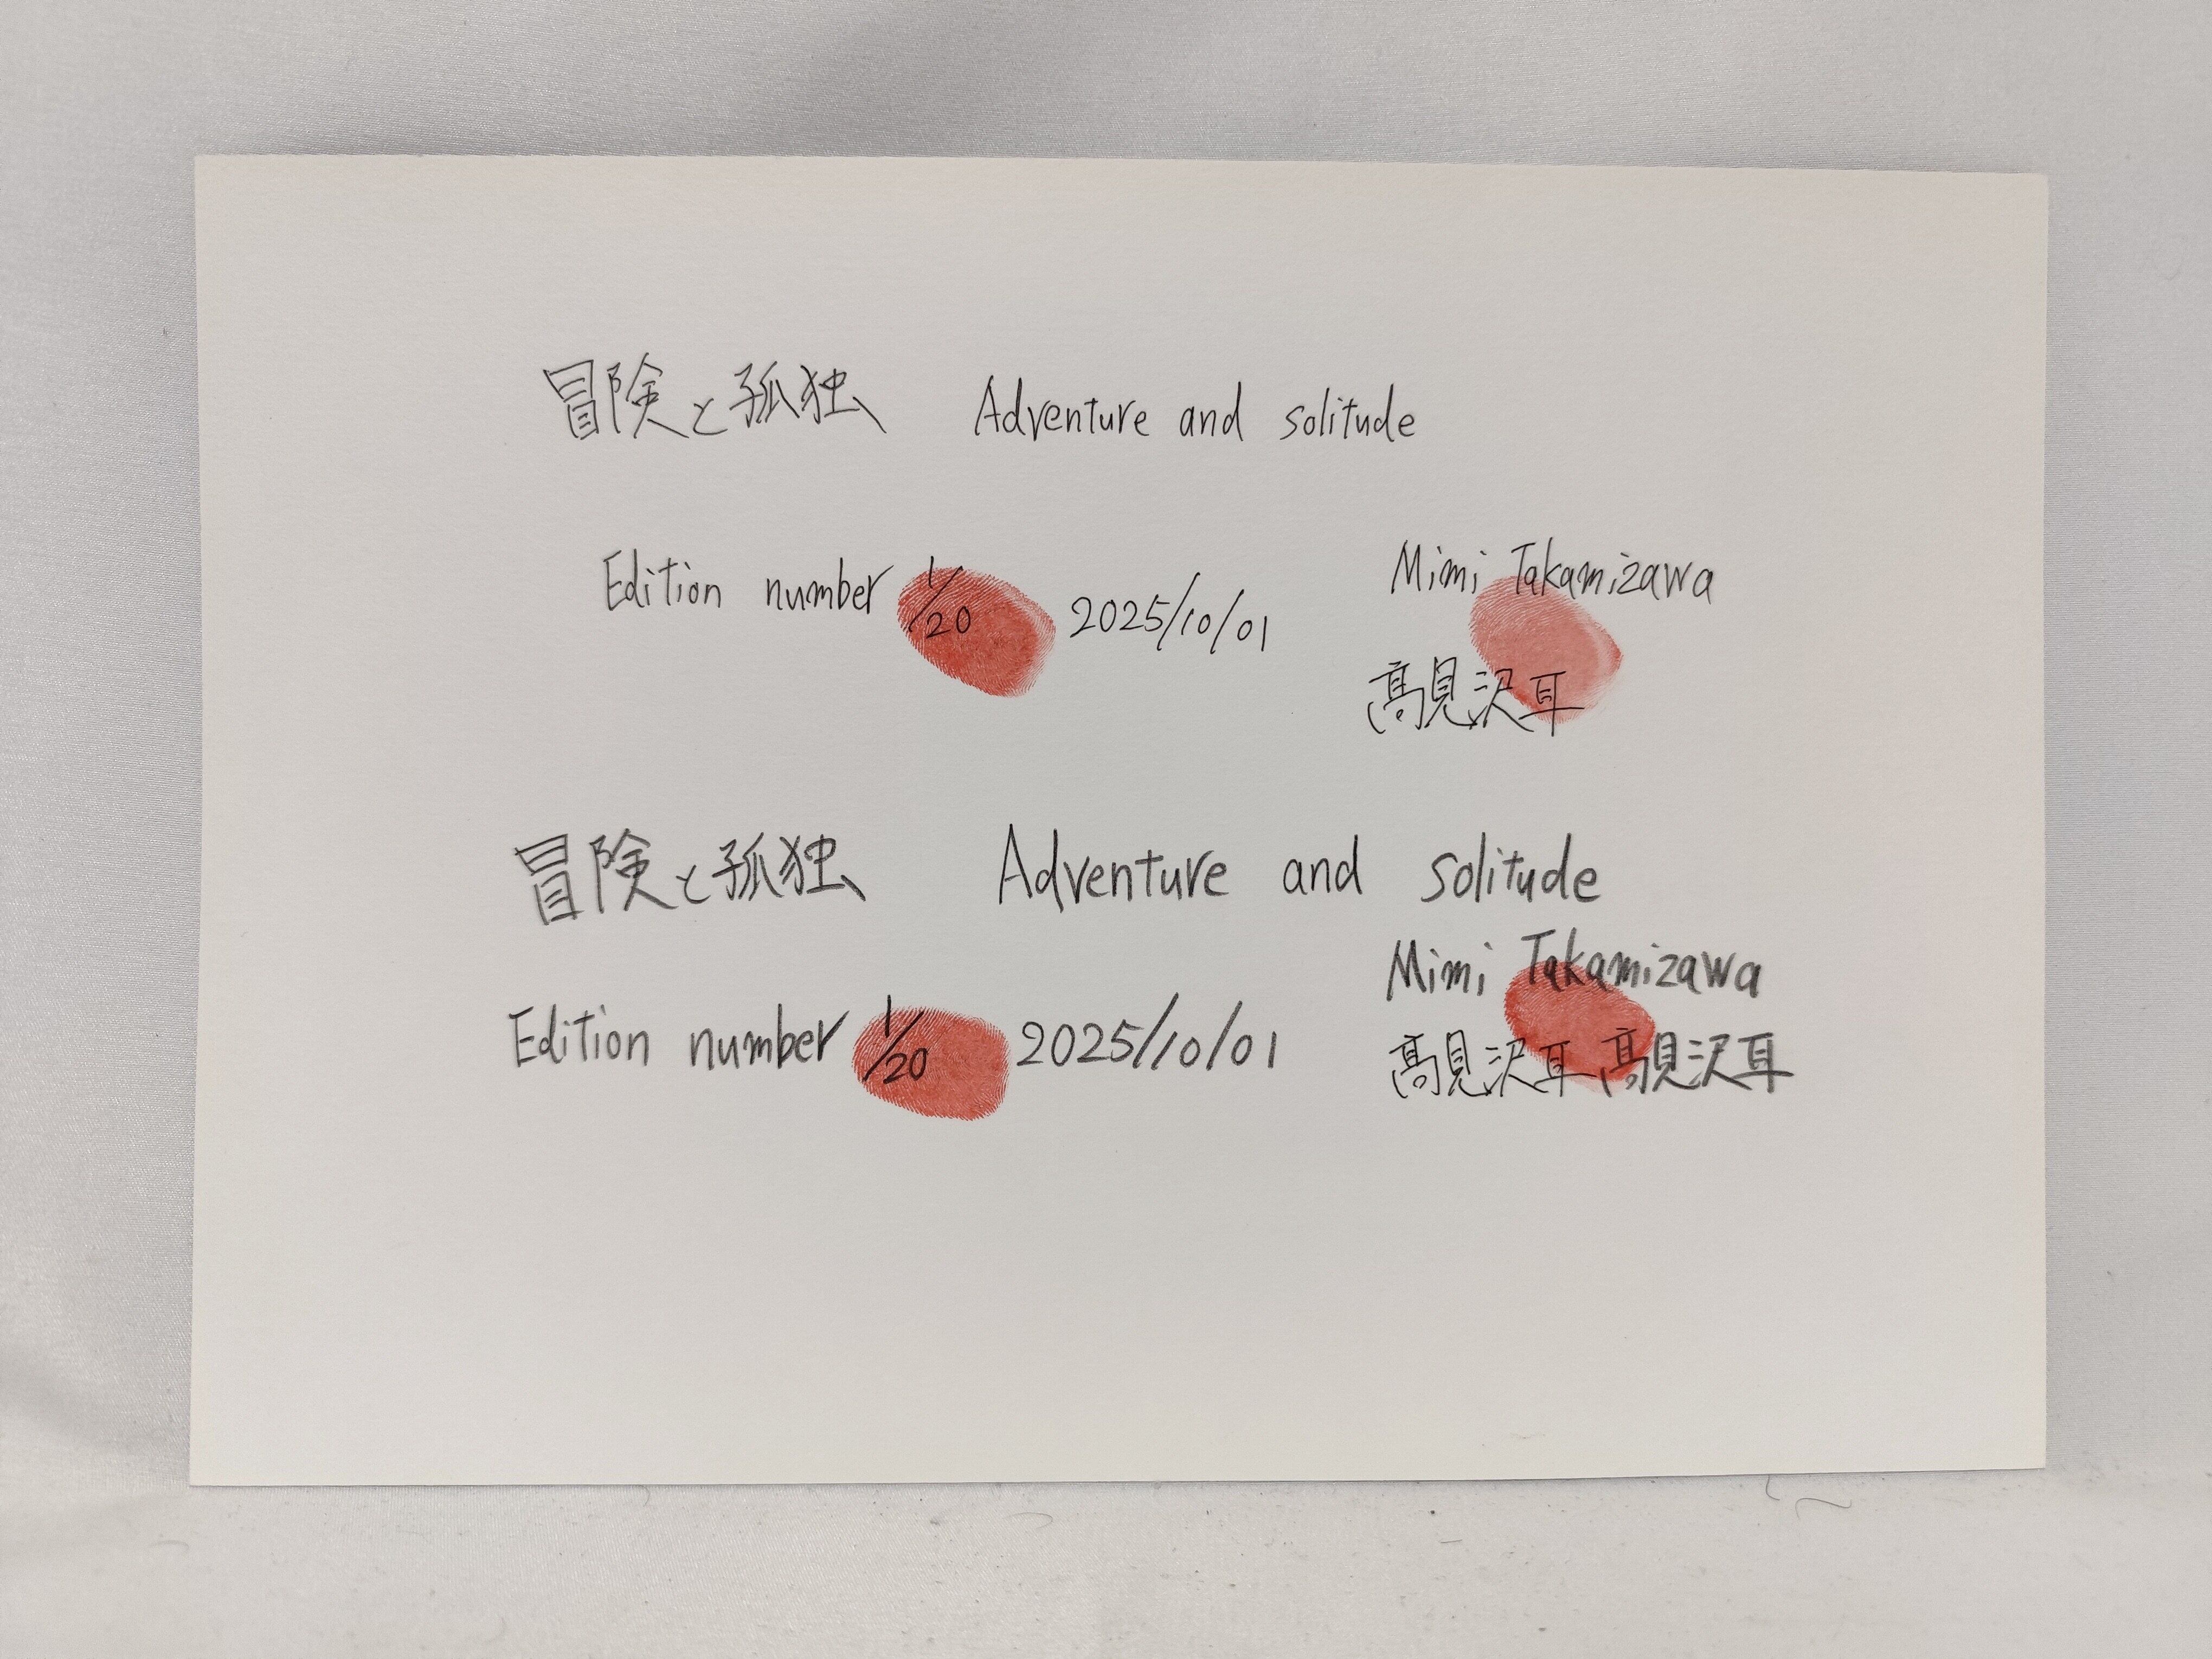 冒険と孤独 Adventure and solitude
Edition number 1/20 2025/10/01
Mimi Takamizawa
髙見沢耳
冒険と孤独 Adventure and solitude
Mimi Takamizawa
Edition number 1/20 2025/10/01
髙見沢耳 髙見沢耳